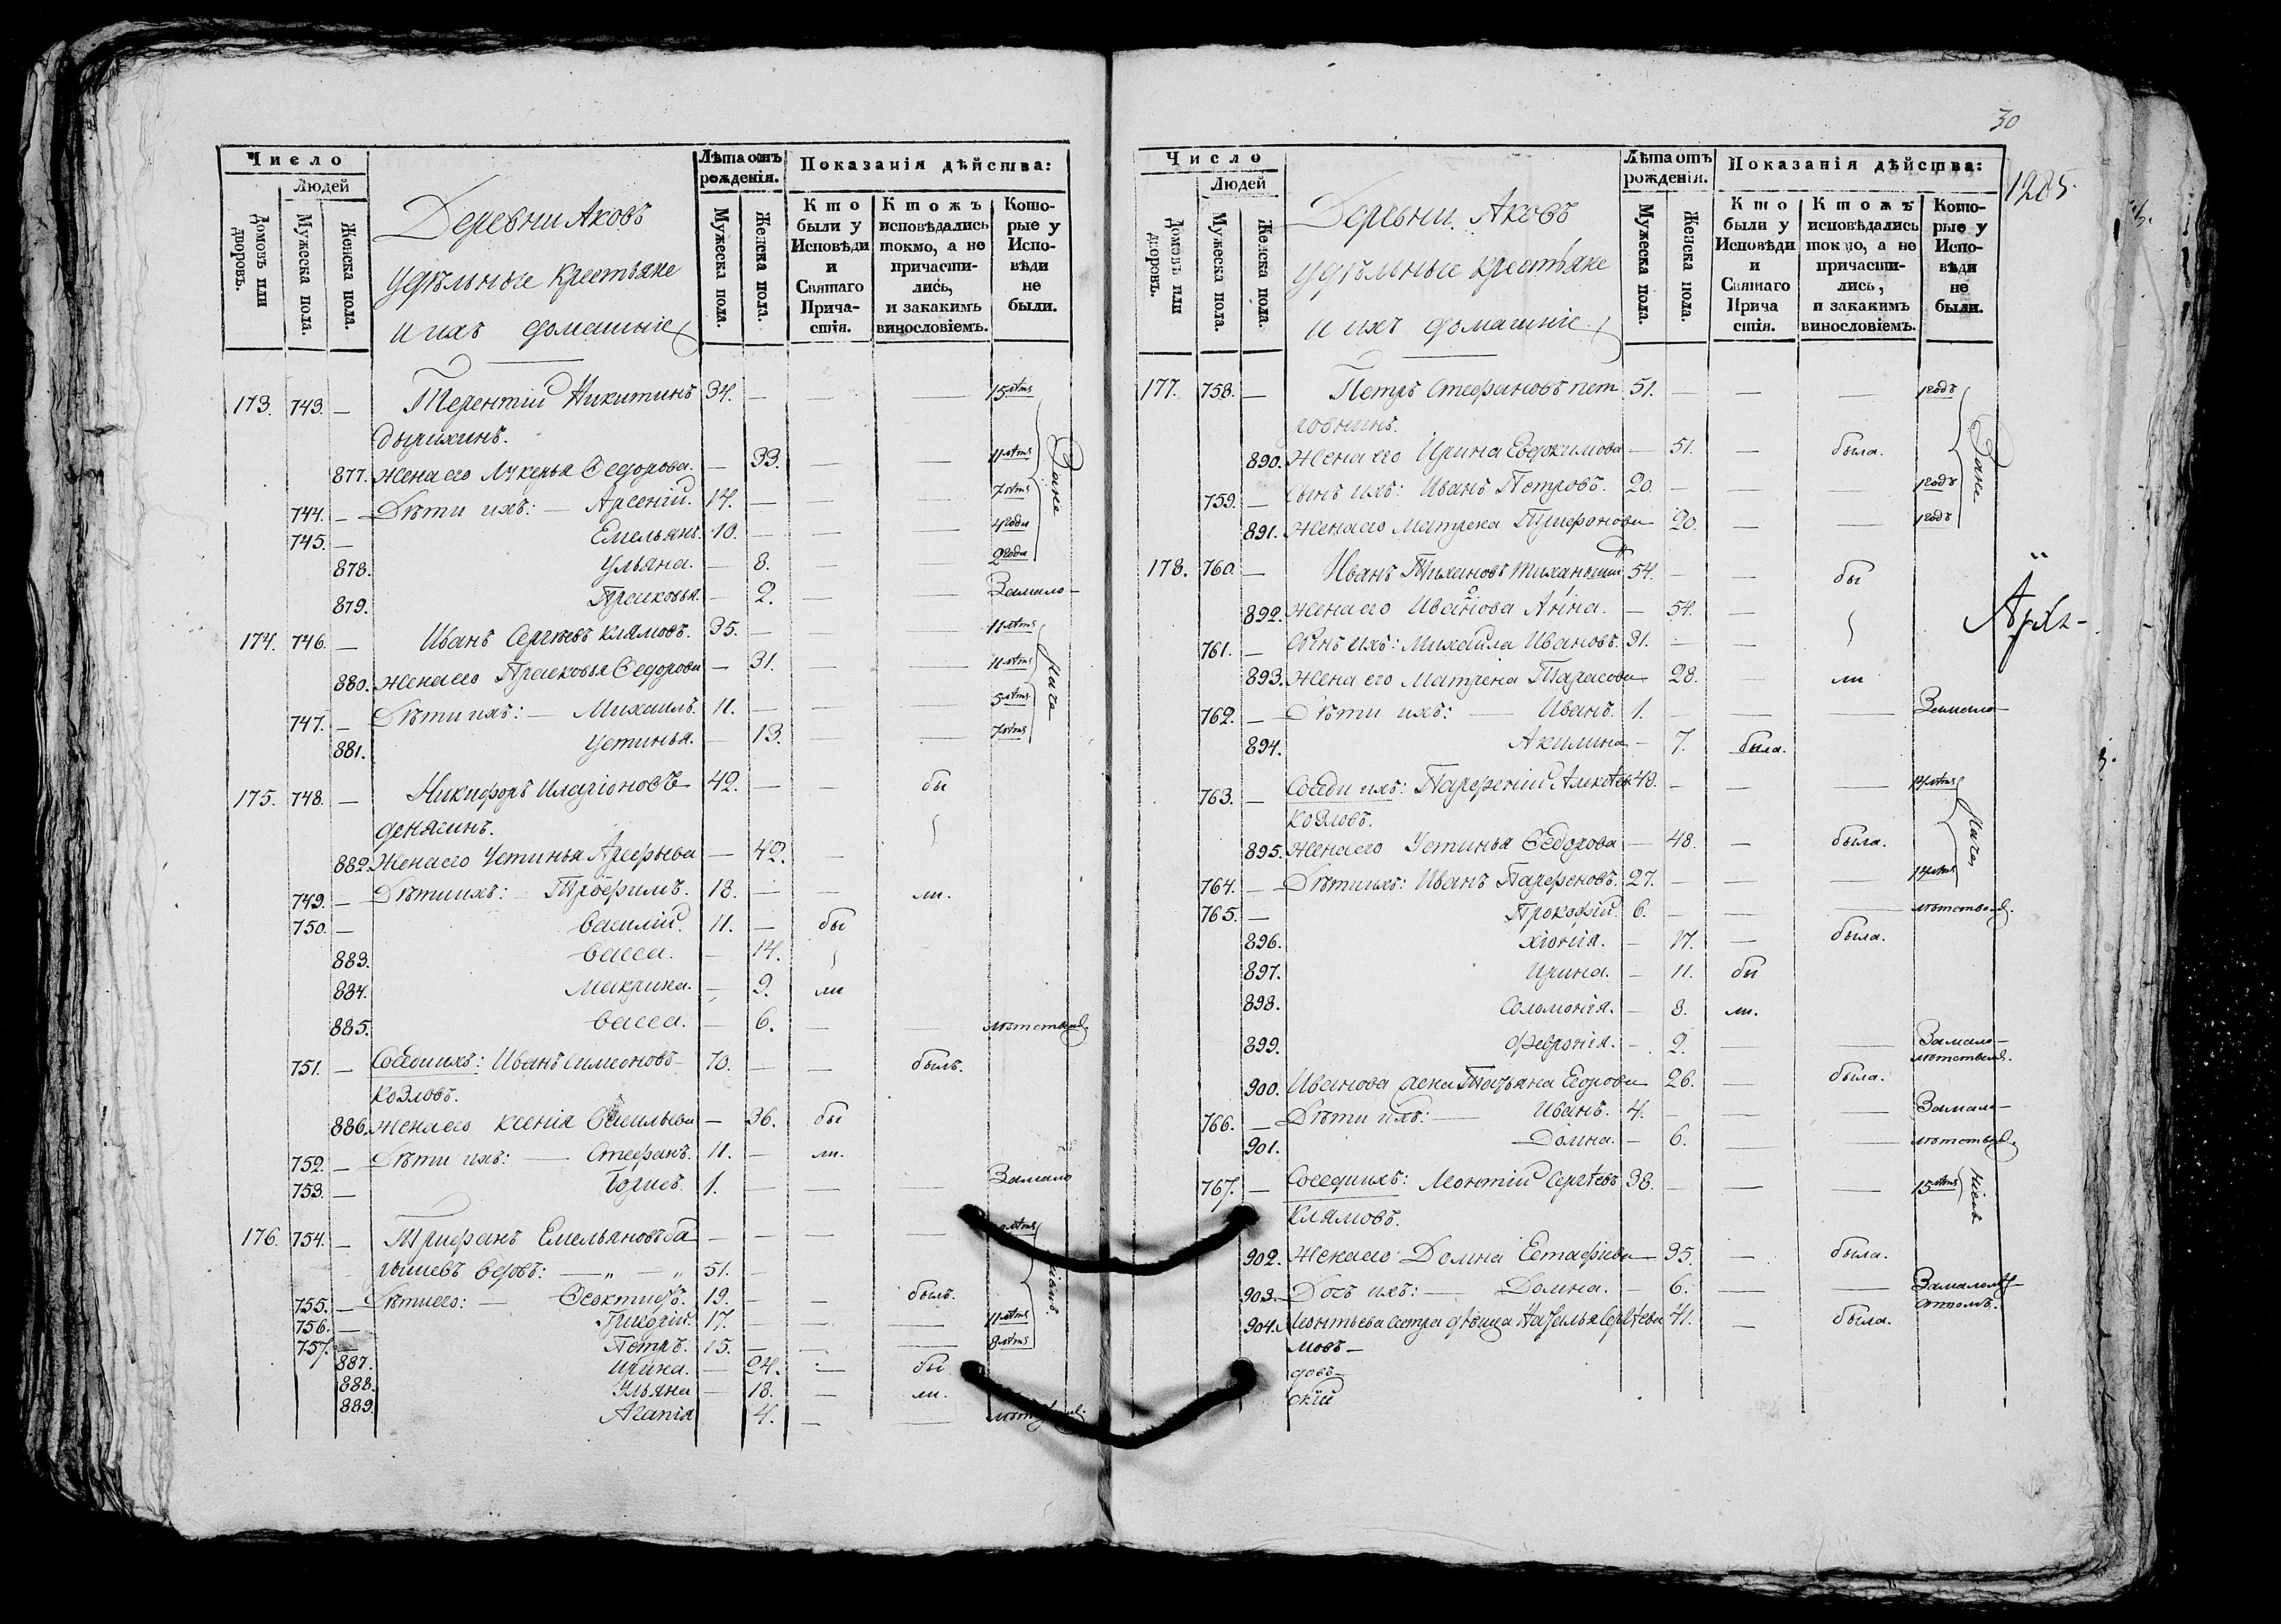 Число
Людей
Домовъ или дворовъ.
Мужеска пола.
Женска пола.
Деревни Аковъ
удѣльные крестьяне
и ихъ домашніе
Лѣта отъ рожденія.
Мужеска пола.
Женска пола.
Показанія дѣйства:
Кто были у Исповѣди и Святаго Прича-стія.
Ктожъ исповѣдались токмо, а не причасти-лись, и закакимъ винословіемъ.
Кото-рые у Испо-вѣди не были.
173. 743. — Терентій Никитинъ 34. — — — 15 лѣтъ
дырихинъ.
877. Жена его Лукерья Ѳедорова. — 33. — — 11 лѣтъ
744. — Дѣти ихъ: — Арсеній. 14. — — — 7 лѣтъ
745. — Емельянъ. 10. — — — 4 годы
878. Ульяна. — 8. — — 2 годы
879. Прасковья. — 2. — — Замало-
174. 746. — Иванъ Сергѣевъ клямовъ. 35. — — — 11 лѣтъ
880. Жена его Прасковья Ѳедорова — 31. — — 11 лѣтъ
747. — Дѣти ихъ: — Михаилъ. 11. — — — 5 лѣтъ
881. Устинья. — 13. — — 7 лѣтъ
175. 748. — Никифоръ Иларіоновъ 42. — — бы
денягинъ.
882. Жена его Устинья Арефьева — 42. —
749. — Дѣти ихъ: — Трофимъ. 18. — — ли.
750. — Василій. 11. — бы
883. Васса. — 14.
884. Макрина. — 9. ли
885. Васса. — 6. — — лѣтствомъ.
751. — Соседи ихъ: Иванъ Симеоновъ 70. — — былъ.
козловъ.
886. Жена его Ксенія Васильева — 36. бы
752. — Дѣти ихъ: — Стефанъ. 11. — ли.
753. — Борисъ. 1. — — — Замало
176. 754. — Трифанъ Емельяновъ ба — — — — лѣтъ
рышевъ вдовъ: — „ — „ 51. —
755. — Дѣти его: — Ѳеоктистъ. 19. — — былъ.
756. — Григорій. 17. — — — 11 лѣтъ
757. — Петръ. 15. — — — 8 лѣтъ
887. Ирина. — 24. — бы
888. Ульяна — 18. — ли.
889. Агапія 4. — —
30
1285.
Число
Людей
Домовъ или дворовъ.
Мужеска пола.
Женска пола.
Деревни Аковъ
удѣльные крестьяне
и ихъ домашніе
Лѣта отъ рожденія.
Мужеска пола.
Женска пола.
Показанія дѣйства:
Кто были у Исповѣди и Святаго Прича стія.
Ктожъ исповѣдались токмо, а не причасти-лись, и закакимъ винословіемъ.
Кото-рые у Испо-вѣди не были.
177. 758. — Петръ Стефановъ пет 51. — — — 1 годъ
ровнинъ.
890. Жена его Ирина Евфимова — 51. — была.
759. — Сынъ ихъ: Иванъ Петровъ. 20. — — — 1 годъ
891. Жена его Матрена Трифонова — 20. — — 1 годъ
178. 760. — Иванъ Тихановъ 54. — — бы
892. Жена его Иванова Анна. — 54. —
761. — Сынъ ихъ: Михайла Ивановъ. 31. — —
893. Жена его Матрена Тарасова — 28. — ли
762. — Дѣти ихъ: — Иванъ. 1. — — — Замало-
894. Акилина — 7. была.
763. — Соседи ихъ: Парфеній Алексѣевъ 49. — — — 14 лѣтъ
козловъ.
895. Жена его Устинья Ѳедорова — 48. — была.
764. — Дѣти ихъ: Иванъ Парфеновъ. 27. — — — 14 лѣтъ
765. — Прокофій. 6. — — — лѣтствомъ.
896. Хіонія. — 17. — была.
897. Ирина. — 11. бы
898. Соломонія. — 8. ли.
899. Февронія. — 2. — — Замало-
лѣтствомъ.
900. Иванова жена Татьяна Егорова 26. — была.
766. — Дѣти ихъ: — Иванъ. 4. — — — Замало-
901. Домна. — 6. — — лѣтствомъ.
767. — Соседи ихъ: Леонтій Сергѣевъ 38. — — — 15 лѣтъ
клямовъ.
902. Жена его Домна Естафьева — 35. — была.
903. — Дочь ихъ: — Домна. — 6. — — Замалолѣт-
ствомъ.
904. Леонтьева сестра дѣвица Наталья Сергѣева 41. — была.
мовъ —
довъ —
скій